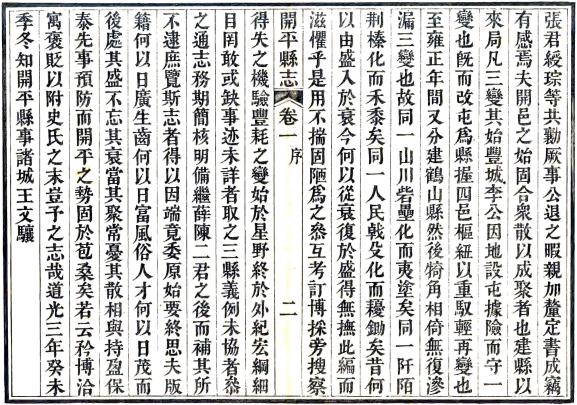 張君綬琮等共勷厥事公退之暇親加釐定書成竊
有感焉夫開邑之始固合衆散以成聚者也建縣以
來局凡三變其始豐城李公因地設屯據險而守一
變也旣而改屯爲縣握四邑樞紐以重馭輕再變也
至雍正年間又分建鶴山縣然後犄角相倚無復滲
漏三變也故同一山川砦壘化而夷塗矣同一阡陌
荆榛化而禾黍矣同一人民戟殳化而耰鋤矣昔何
以由盛入於衰今何以從衰復於盛得無撫此編而
滋懼乎是用不揣固陋爲之叅互考訂博採旁搜察
開平縣志
卷一
序
二
得失之機驗豐耗之變始於星野終於外紀宏綱細
目罔敢或缺事迹未詳者取之三縣義例未協者叅
之通志務期簡核明備繼薛陳二君之後而補其所
不逮庶覽斯志者得以因端竟委原始要終思夫版
籍何以日廣生齒何以日富風俗人才何以日茂而
後處其盛不忘其衰當其聚常憂其散相與持盈保
泰先事預防而開平之勢固於苞桑矣若云矜博洽
寓褒貶以附史氏之末豈予之志哉道光三年癸未
季冬知開平縣事諸城王文驤